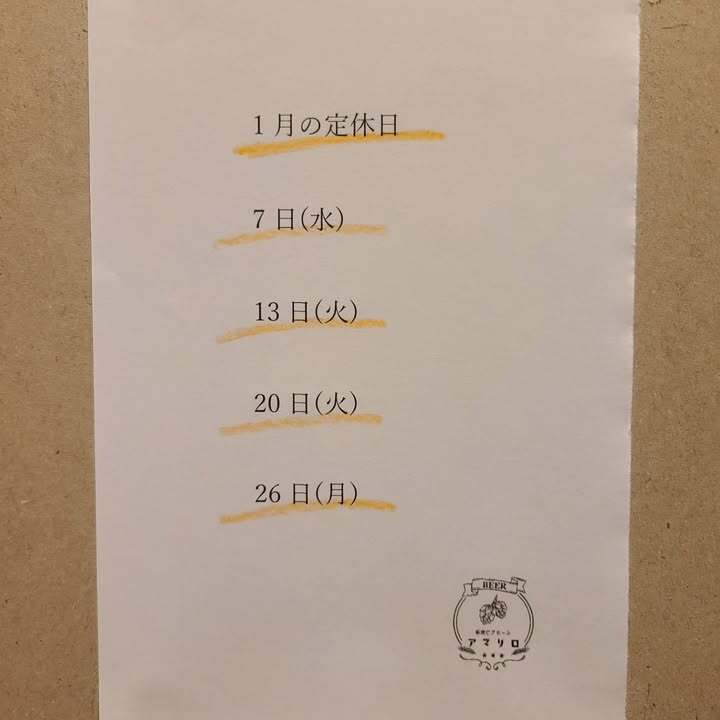 1月の定休日
7日(水)
13日(火)
20日(火)
26日(月)
BEER
アマリロ